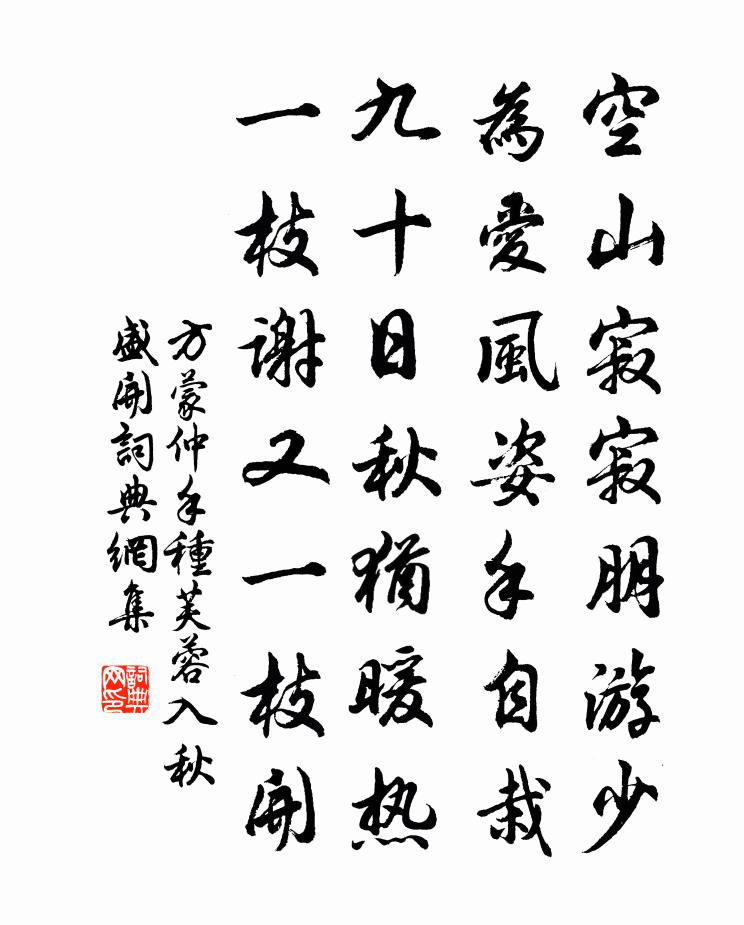 空山寂寂朋游少
為愛風姿手自栽
九十日秋猶暖热
一枝谢又一枝開
方蒙仲手種芙蓉入秋
盛開詞典網集
詞典网印